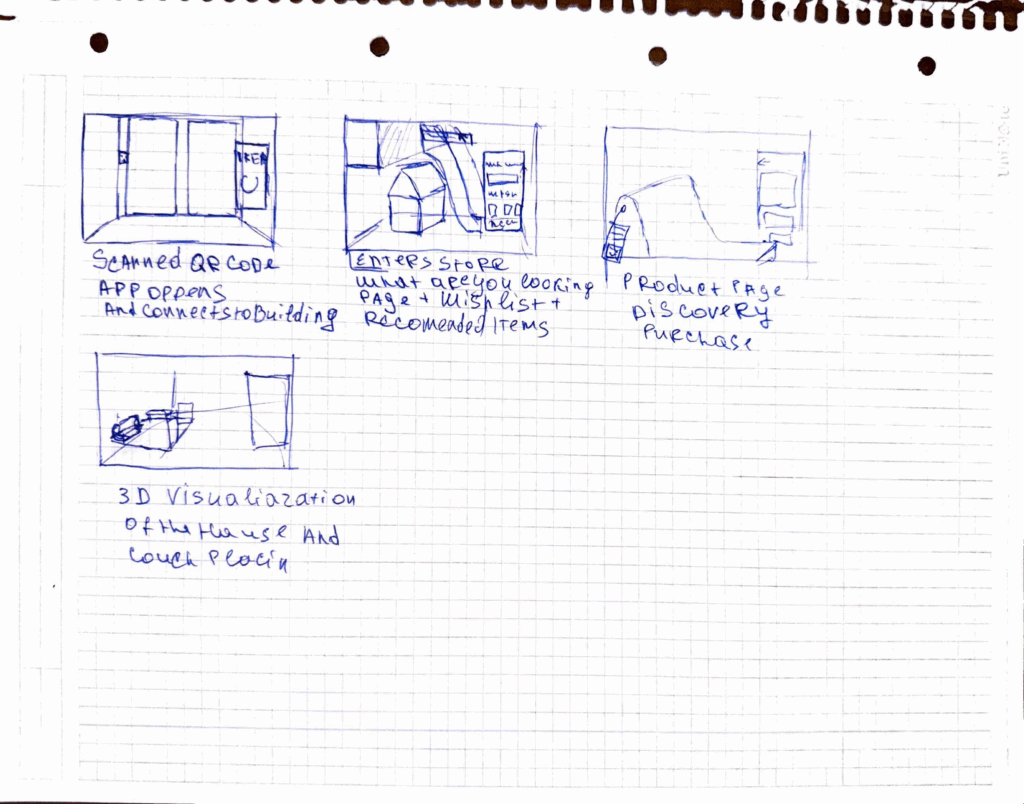 IKEA
SCANNED QR CODE
APP OPPENS
And connects to Building
ENTERS STORE
what are you looking
PAGE + Wishlist +
Recomended Items
PRoduct PAge
DISCOVERY
PURCHASE
3D Visualiazation
Of the House And
Couch Placin